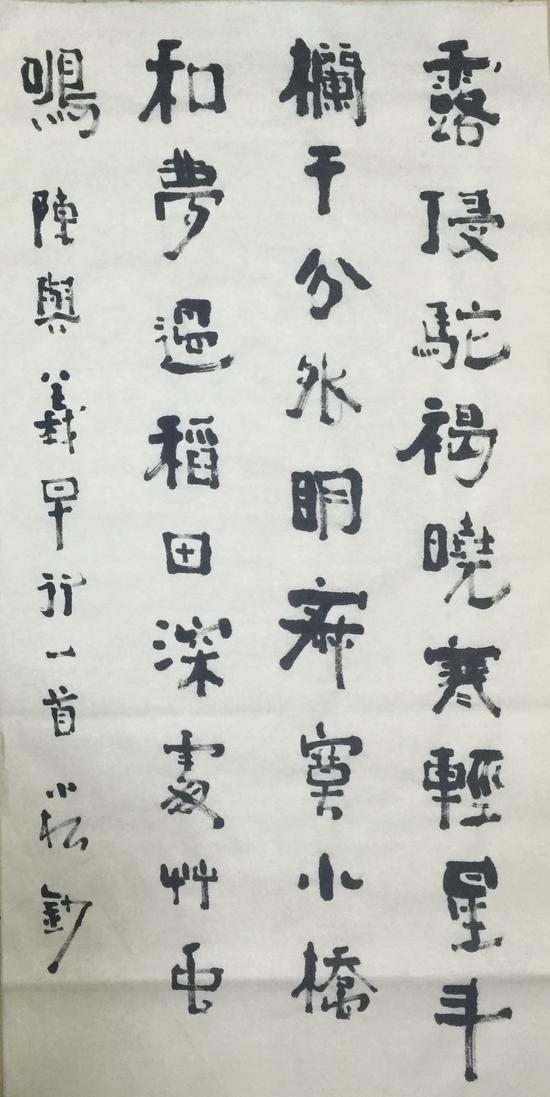 露侵駝褐曉寒輕星斗
欄干分外明寂寞小橋
和夢過稻田深處艸虫
鳴 陳與義早行一首 小松鈔